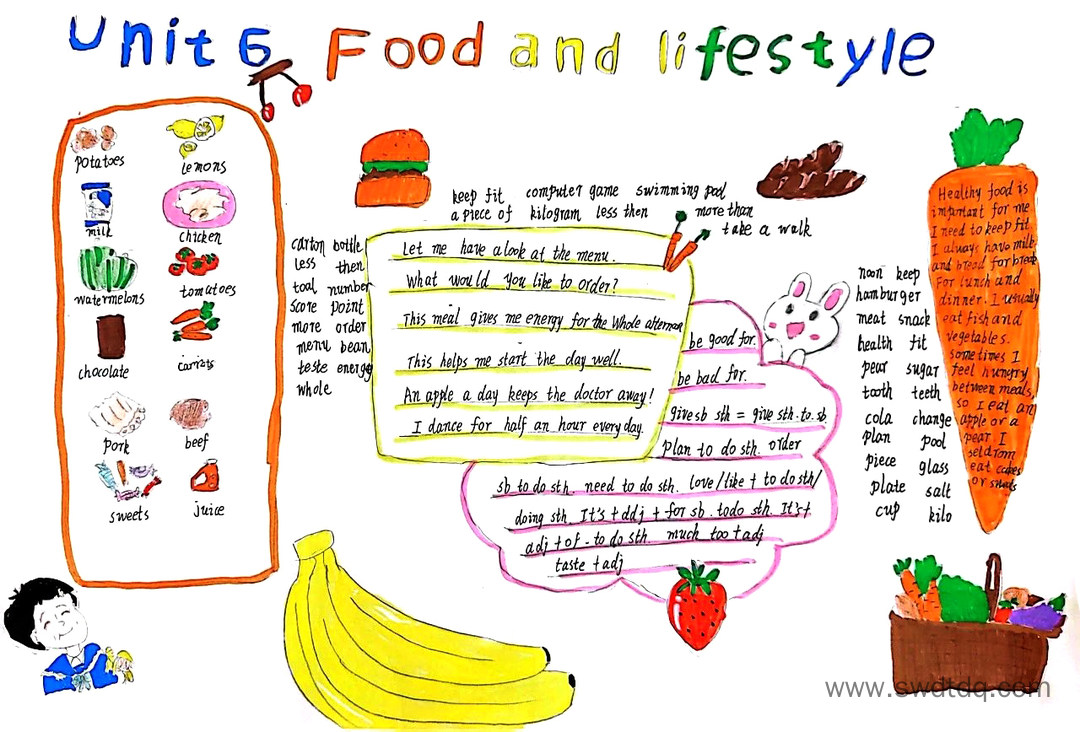 Unit 6 Food and lifestyle
potatoes
lemons
milk
chicken
watermelons
tomatoes
chocolate
carrots
pork
beef
sweets
juice
keep fit computer game swimming pool
a piece of kilogram less then more than
take a walk
carton bottle
less then
tool number
score point
more order
menu bean
teste energy
whole
Let me have a look at the menu.
What would you like to order?
This meal gives me energy for the whole afternoon
This helps me start the day well.
An apple a day keeps the doctor away!
I dance for half an hour every day.
be good for.
be bad for.
give sb sth = give sth. to. sb
plan to do sth. order
sb to do sth. need to do sth. love/like + to do sth/
doing sth. It's + ddj + for sb. todo sth. It's +
adj + of - to do sth. much too + adj
taste + adj
noon keep
hamburger
meat snack
health fit
pear sugar
tooth teeth
cola change
plan pool
piece glass
plate salt
cup kilo
Healthy food is
important for me
I need to keep fit
I always have milk
and bread for break
For lunch and
dinner. I usually
eat fish and
vegetables.
sometimes I
feel hungry
between meals,
so I eat an
apple or a
pear. I
seldrom
eat cakes
or sweets
www.swdtdq.com